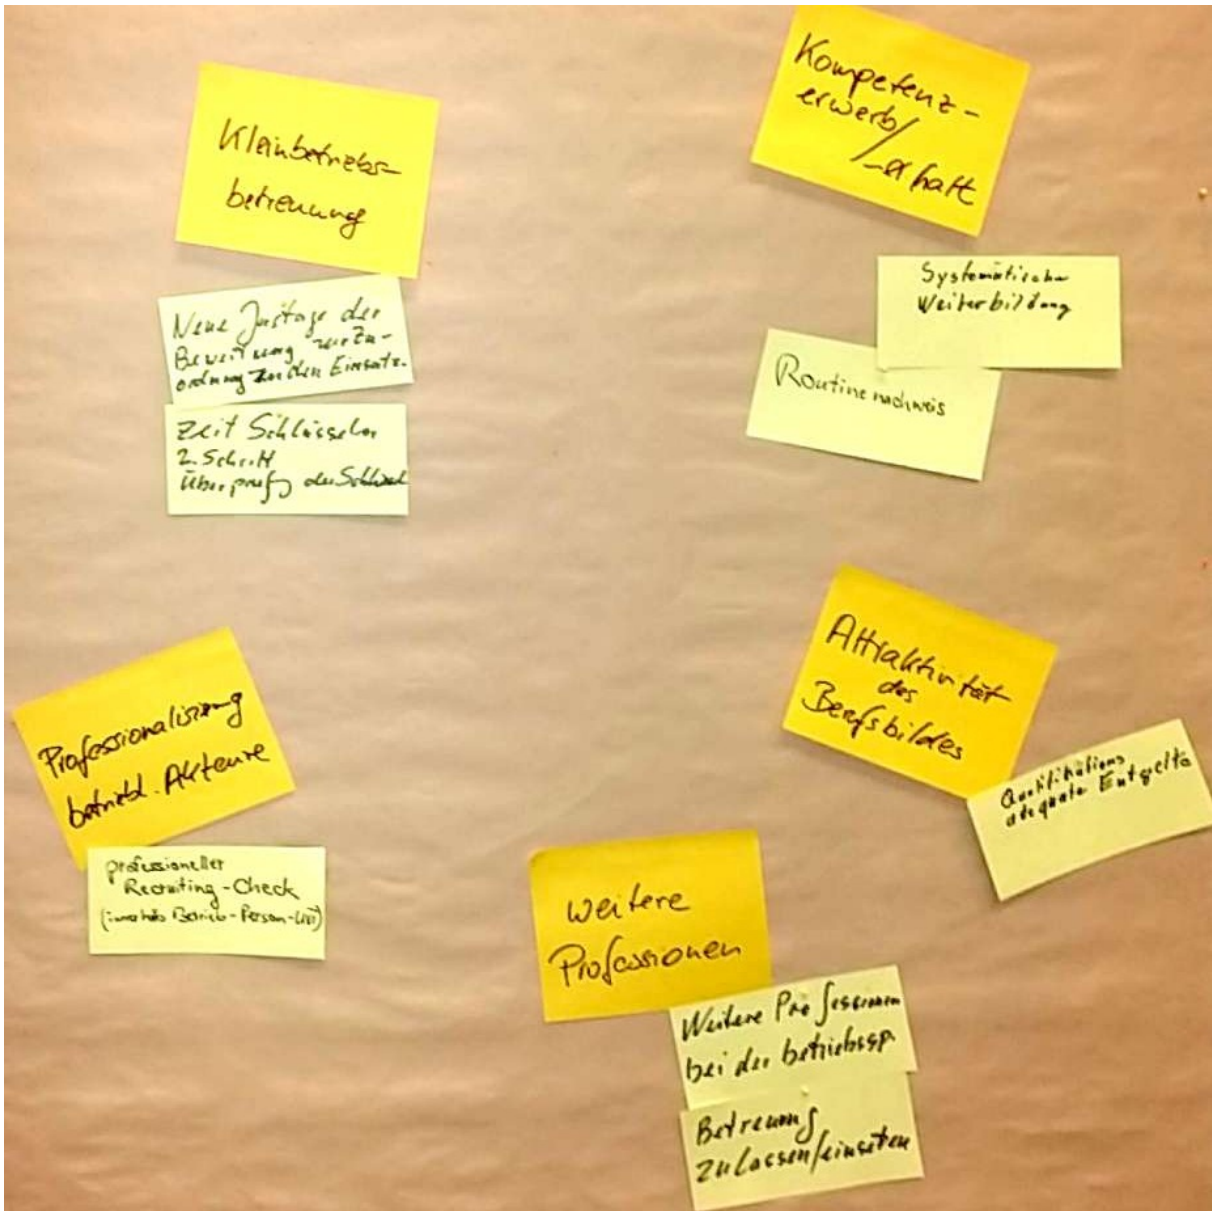 Kleinbetriebs-
betreuung
Neue Justage der
Bewertung zur Zu-
ordnung zu den Einsatz-
zeit Schlüsseln
2. Schritt
Überprüfg der Schlüssel
Kompetenz-
erwerb/
-erhalt
Systematische
Weiterbildung
Routinenachweis
Professionalisierung
betriebl. Akteure
professioneller
Recruiting-Check
Betrieb-Person-
Attraktivität
des
Berufsbildes
Qualifikations
adequate Entgelte
weitere
Professionen
Weitere Professionen
bei der betriebssp.
Betreuung
zulassen/einsetzen